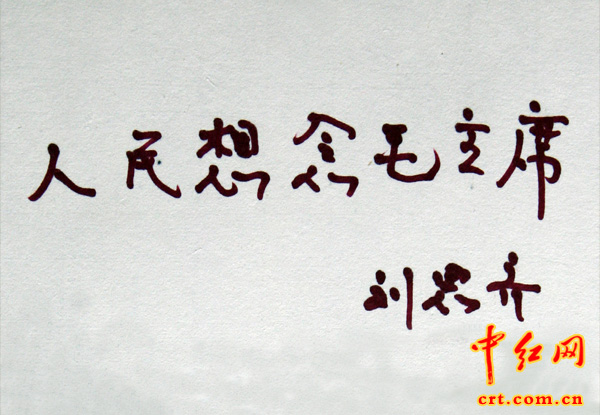 人民想念毛主席
刘思齐
中红网
crt.com.cn